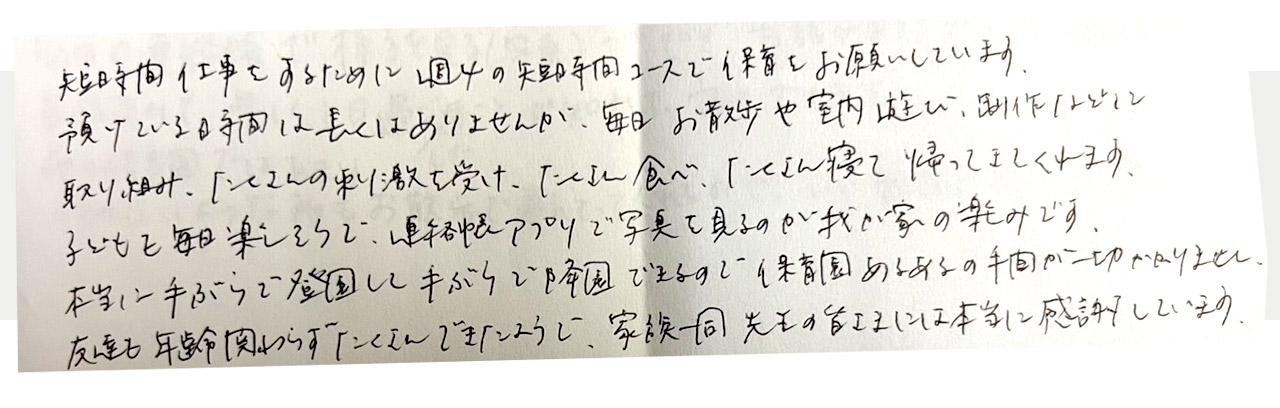 短時間仕事をするために週4の短時間コースで保育をお願いしています。
預けている時間は長くはありませんが、毎日お散歩や室内遊び、創作などに
取り組み、たくさんの刺激を受け、たくさん食べ、たくさん寝て帰ってきてくれます。
子どもも毎日楽しそうで、連絡帳アプリで写真を見るのが我が家の楽しみです。
本当に手ぶらで登園して手ぶらで降園できるので保育園あるあるの手間が一切かかりません。
友達も年齢関わらずたくさんできたようで、家族一同先生の皆さまには本当に感謝しています。